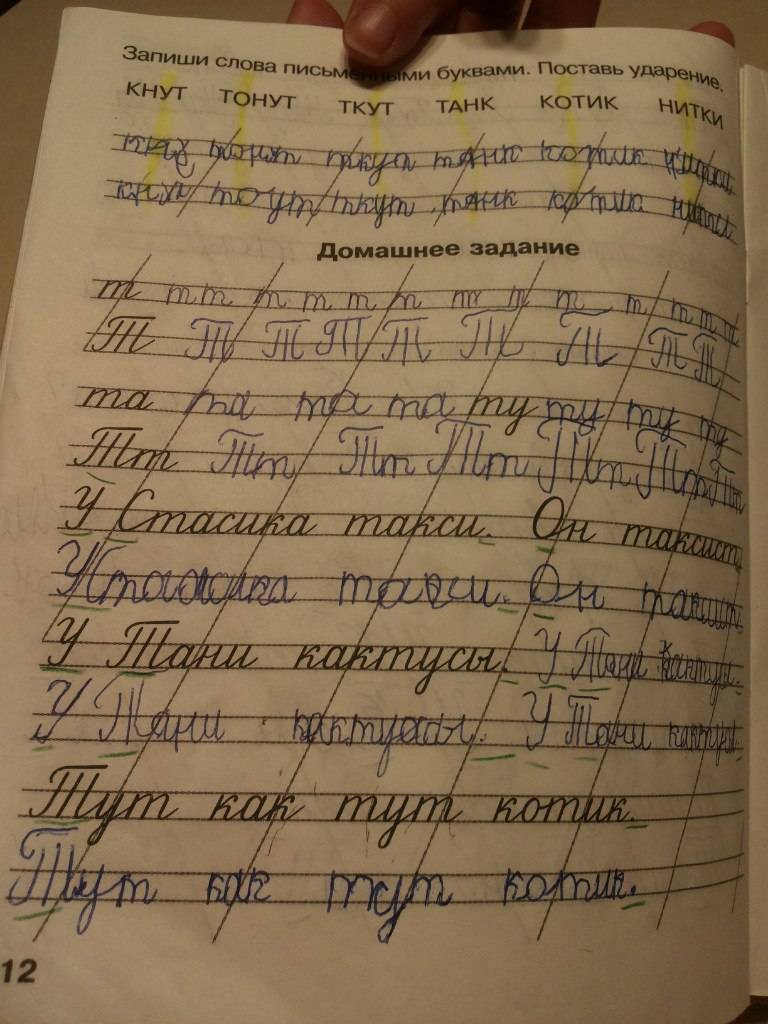 Запиши слова письменными буквами. Поставь ударение.
КНУТ ТОНУТ ТКУТ ТАНК КОТИК НИТКИ
кнут тонут ткут танк котик нитки
кнут тоут ткут танк котик нитки
Домашнее задание
т т т т т т т т т т т т т т
Т Т Т Т Т Т Т Т Т
та та та та ту ту ту ту
Тт Тт Тт Тт Тт Тт Тт
У Стасика такси. Он таксист.
У Стасика такси. Он таксист.
У Тани кактусы. У Тани кактусы.
У Тани кактусы. У Тани кактусы.
Тут как тут котик.
Тут как тут котик.
12